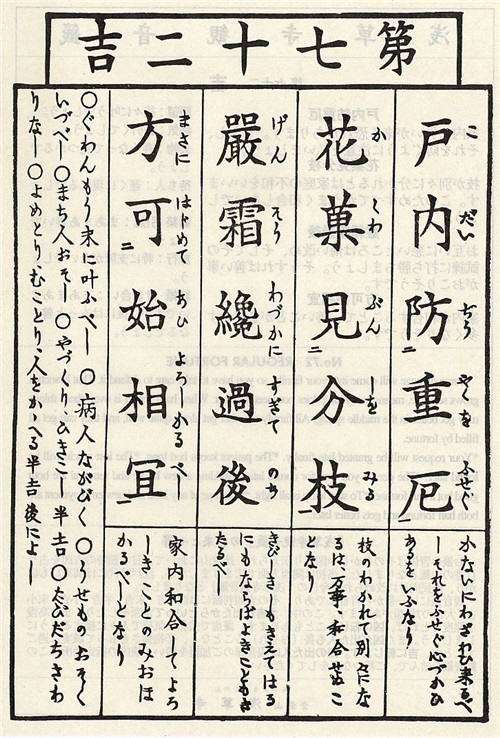 第七十二吉
こ だい ぢう やくを ふせぐ
戸内防二重厄一
かないにわざわひ来るべ
しそれをふせぐ心づかひ
あるをいふなり
か くわ ぶん しを みる
花菓見二分枝一
枝のわかれて別々にな
るは、万事、和合せぬこ
となり
げん そう わづかに すぎて のち
嚴霜纔過後
きびしきしもきえてはる
にもならばよきこともき
たるべし
まさに はじめて あひ よろしかるべし
方可二始相宜一
家内和合してよろ
しきことのみおほ
かるべしとなり
〇ぐわんもう末に叶ふべし〇病人ながびく〇うせものおそく
いづべし〇まち人おそし〇やづくりひきこし半吉〇たびだちさわ
りなし〇よめとり、むことり、人をかゝへる半吉後によし